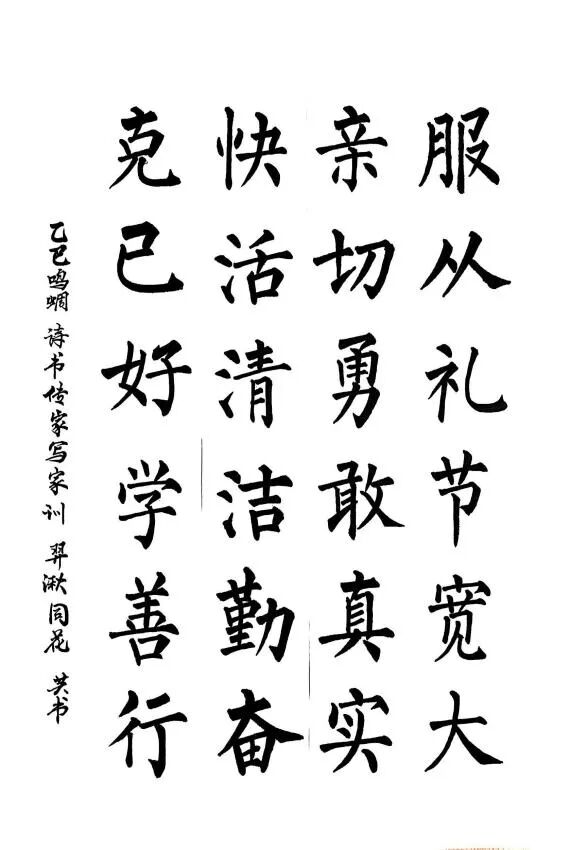 服从礼节宽大
亲切勇敢真实
快活清洁勤奋
克己好学善行
乙巳鸣蜩 诗书传家写家训 羿湫同花 共书